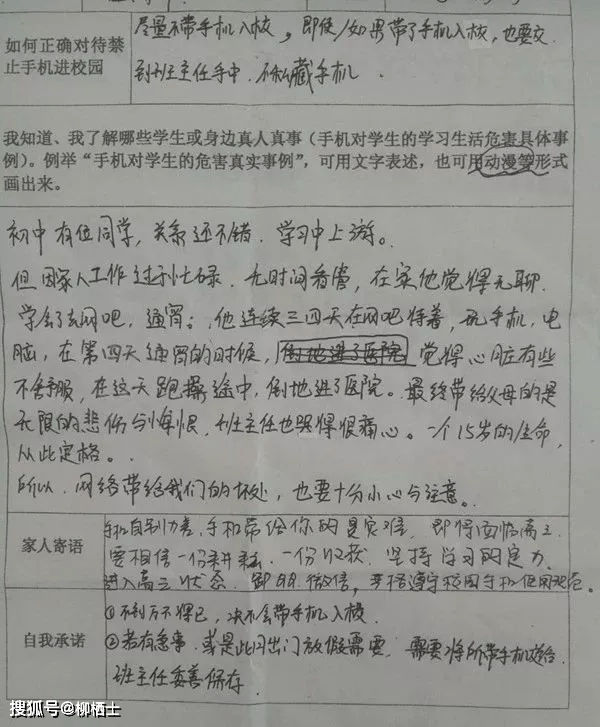 如何正确对待禁
止手机进校园
尽量不带手机入校，即使/如果带了手机入校，也要交
到班主任手中．不私藏手机．
我知道、我了解哪些学生或身边真人真事（手机对学生的学习生活危害具体事
例）。例举“手机对学生的危害真实事例”，可用文字表述，也可用动漫等形式
画出来。
初中有位同学，关系还不错．学习中上游。
但因家人工作过于忙碌．无时间看管，在家他觉得无聊．
学会了去网吧，通宵；他连续三四天在网吧待着，玩手机，电
脑，在第四天通宵的时候，倒地进了医院 觉得心脏有些
不舒服，在这天跑操途中，倒地进了医院。最终带给父母的是
无限的悲伤与悔恨．班主任也哭得很痛心。一个15岁的生命，
从此定格。
所以．网络带给我们的坏处，也要十分小心与注意。
家人寄语
自制力差，手机带给你的是灾难．即将面临高三．
要相信一份耕耘．一份收获．坚持学习的定力．
进入高三状态．卸QQ．微信，严格遵守校园手机使用规范。
自我承诺
①不到万不得已，决不会带手机入校．
②若有急事．或是此月出门放假需要．需要将所带手机送给
班主任妥善保存．
搜狐号@柳栖士